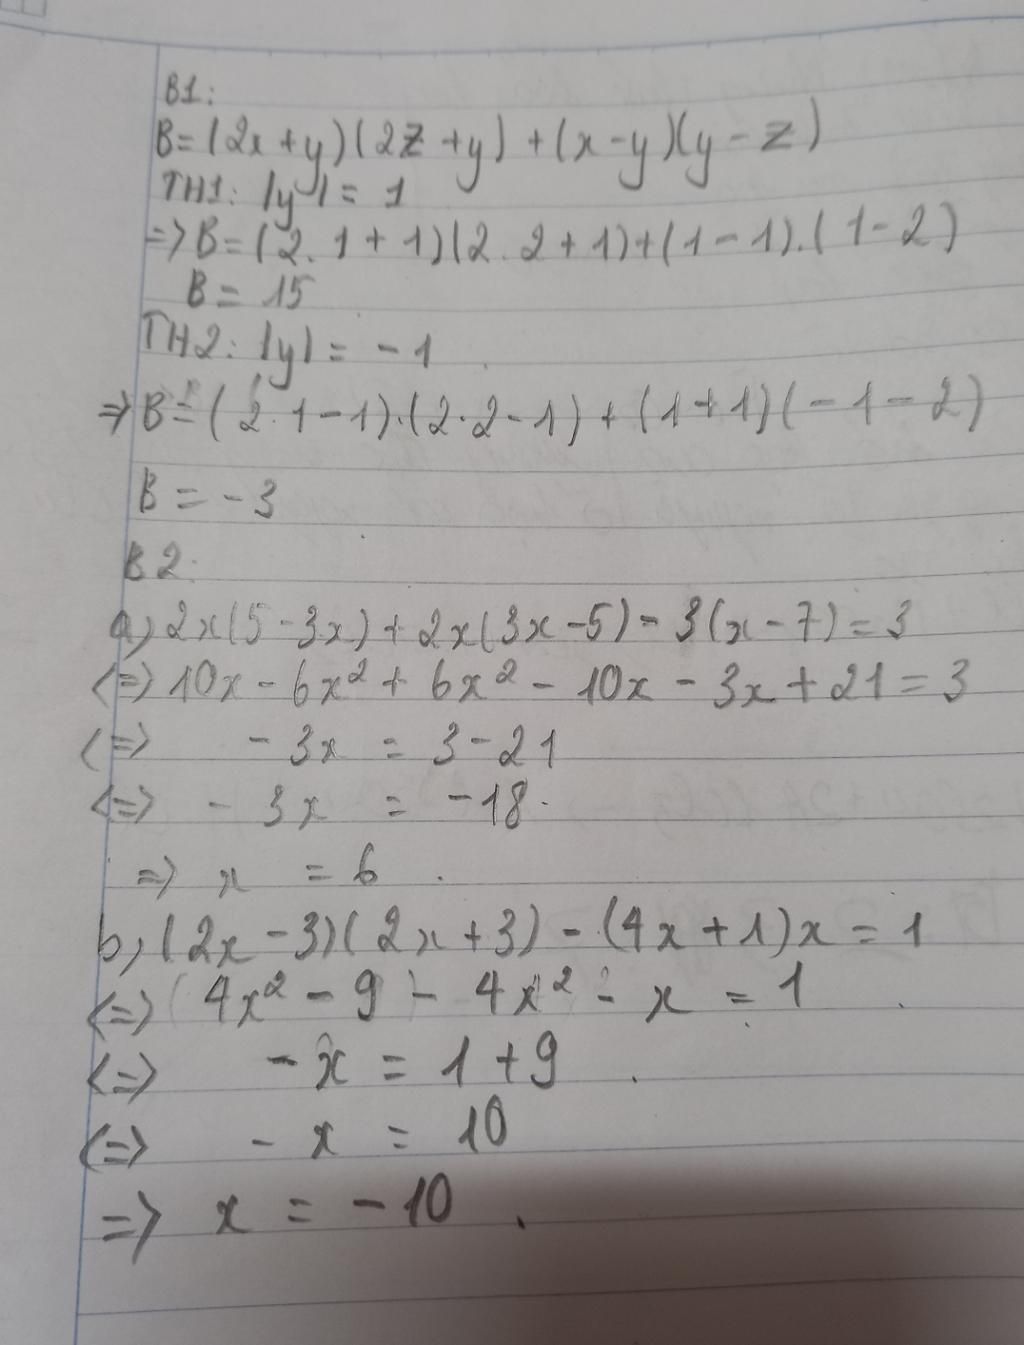 B1:
B=(2x+y)(2z+y)+(x-y)(y-z)
TH1: |y|= 1
=> B=(2.1+1)(2.2+1)+(1-1).(1-2)
B= 15
TH2: |y|= -1
=> B=(2.1-1).(2.2-1)+(1+1)(-1-2)
B = -3
B2:
a, 2x(5-3x)+2x(3x-5)-3(x-7)=3
<=> 10x-6x²+6x²-10x-3x+21=3
<=> -3x = 3-21
<=> -3x = -18.
=> x = 6.
b, (2x-3)(2x+3)-(4x+1)x=1
<=> (4x²-9)-4x²-x=1
<=> -x = 1+9.
<=> -x = 10
=> x = -10.